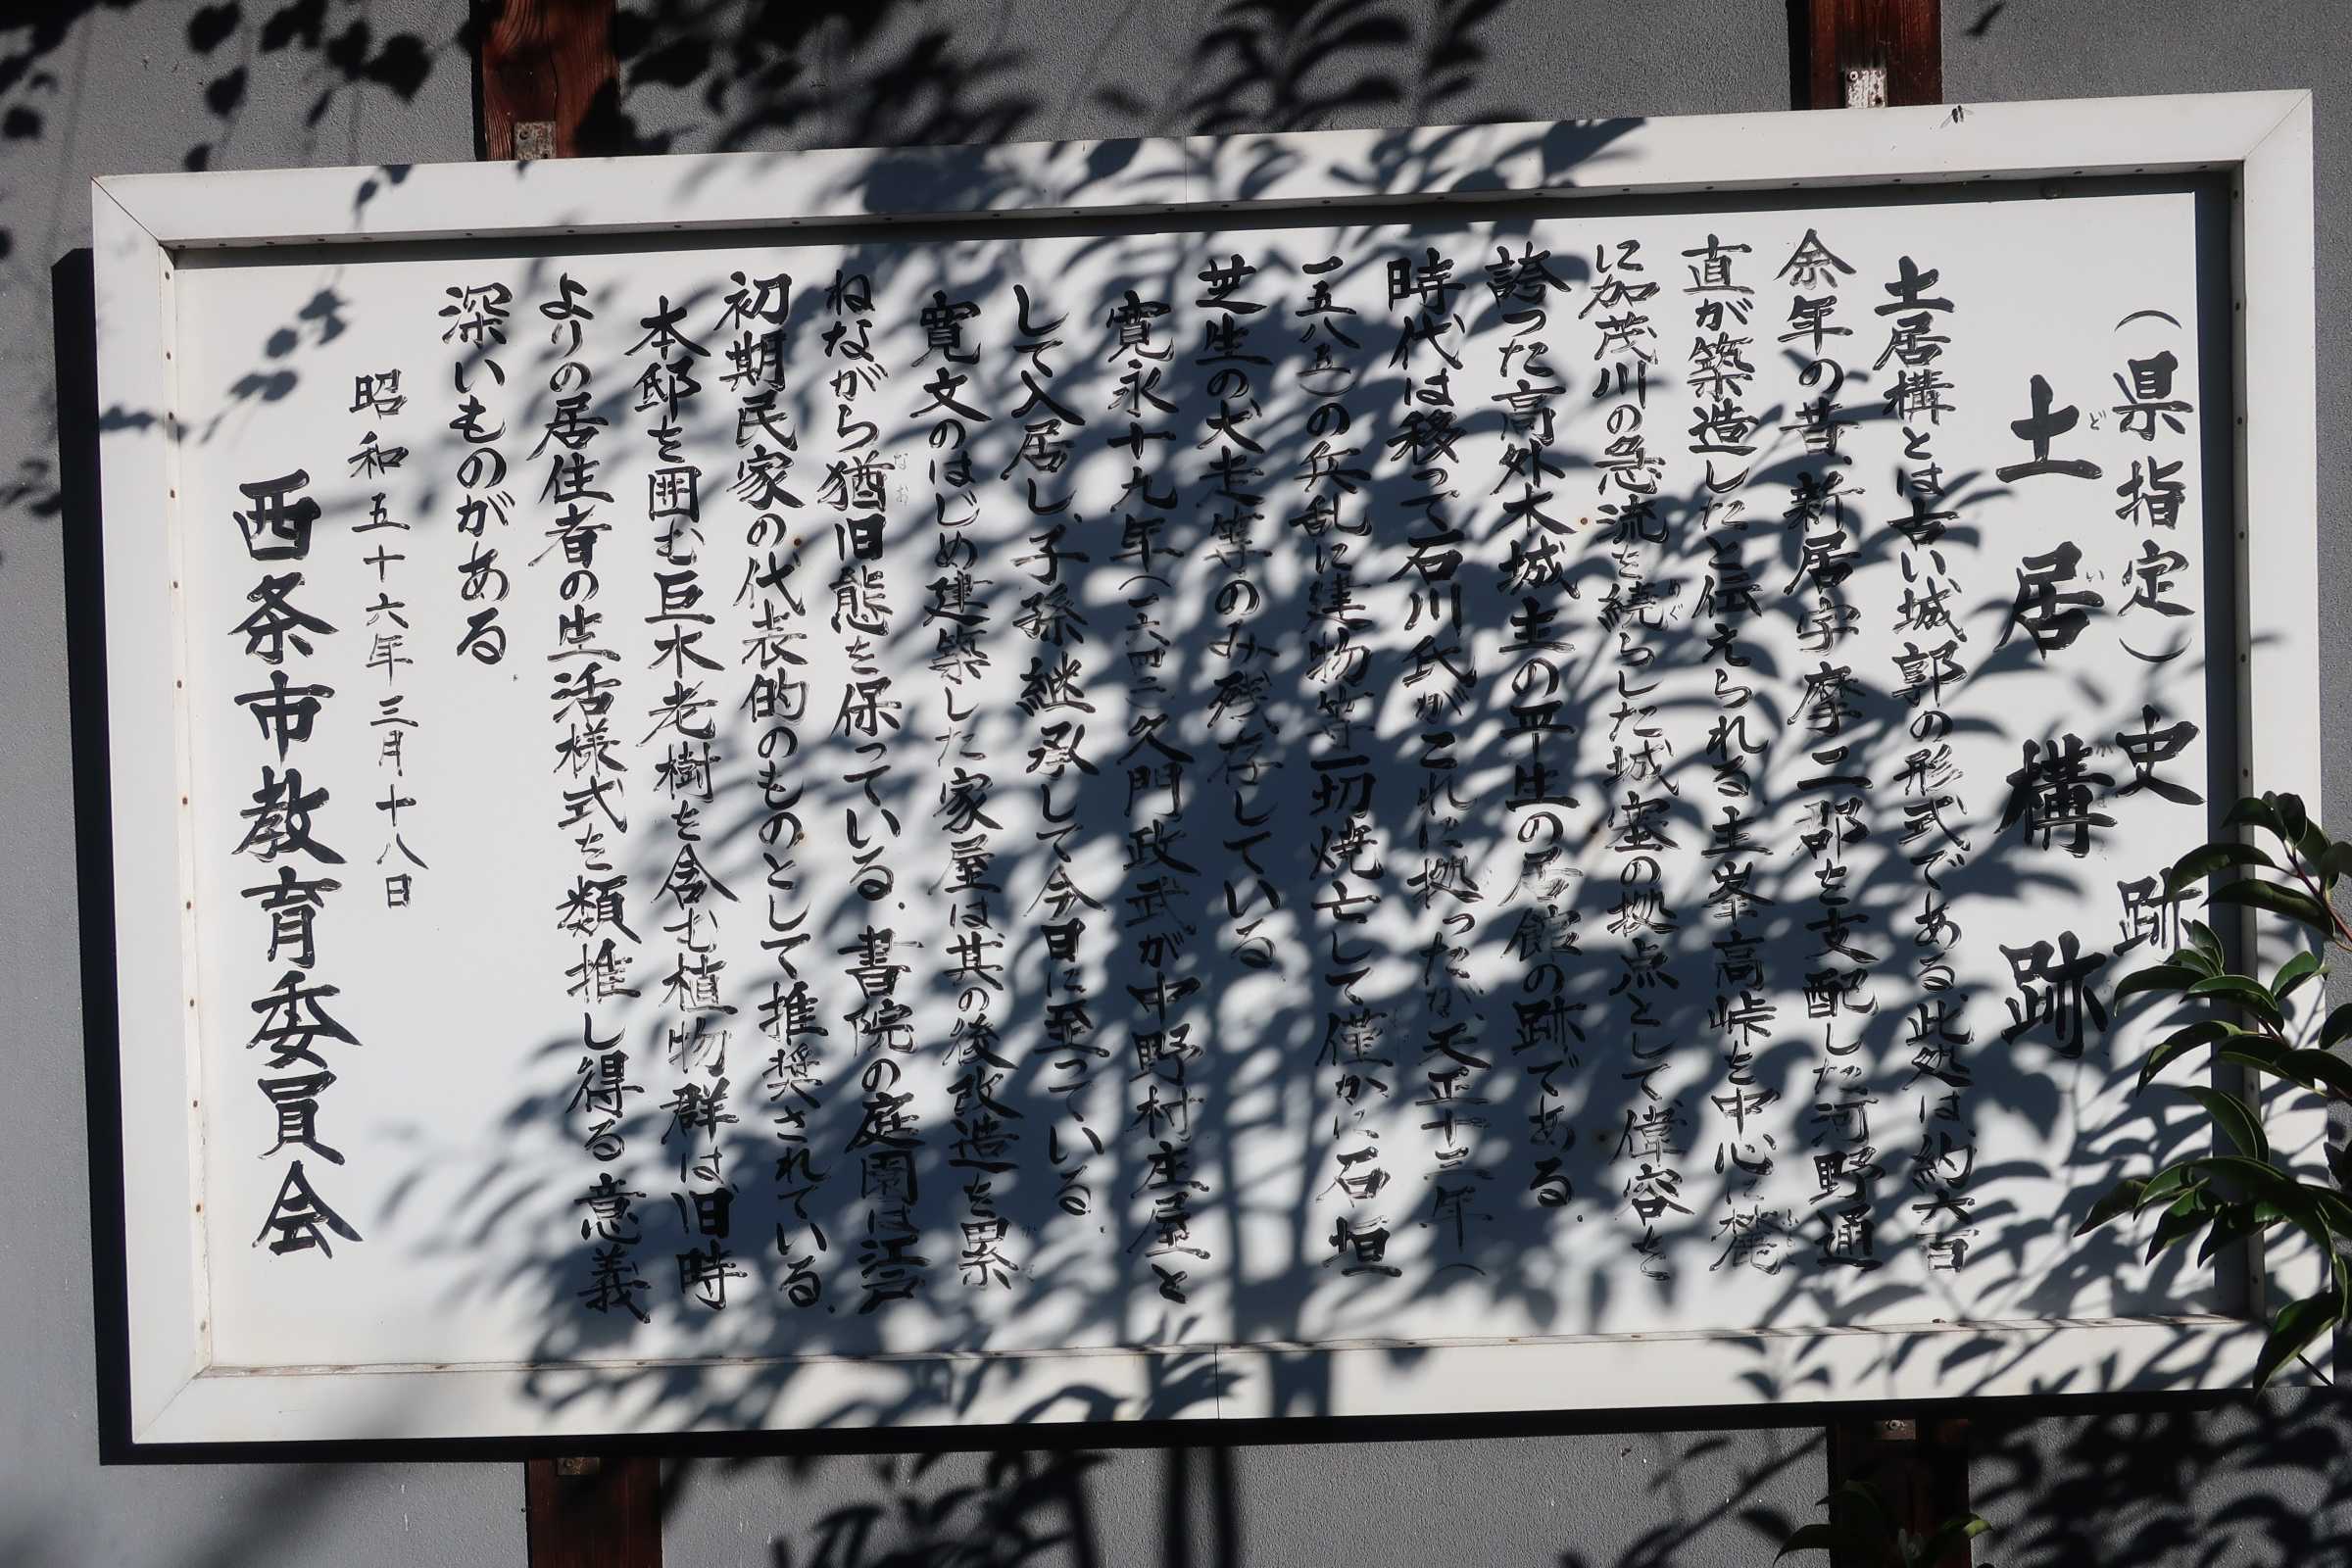 (県指定)史跡
土居構跡
土居構とは古い城郭の形式である、此処は、約六百
余年の昔、新居宇摩二郡を支配した河野通
直が築造したと伝えられる主峯高峠を中心に麓
に加茂川の急流を繞らした城塞の拠点として偉容を
誇った高外木城主の平生の居館の跡である.
時代は移って、石川氏がこれに拠ったが、天正十三年(
一五八五)の兵乱に建物等一切焼亡して僅かに石垣
芝生の犬走等のみ残存している
寛永十九年(一六四二)久門政武が中野村庄屋と
して入居し、子孫継承して今日に至っている.
寛文のはじめ建築した家屋は其の後改造を累
ねながら猶旧態を保っている.書院の庭園は江戸
初期民家の代表的のものとして推奨されている.
本邸を囲む巨木老樹を含む植物群は旧時
よりの居住者の生活様式を類推し得る意義
深いものがある.
昭和五十六年三月十八日
西条市教育委員会